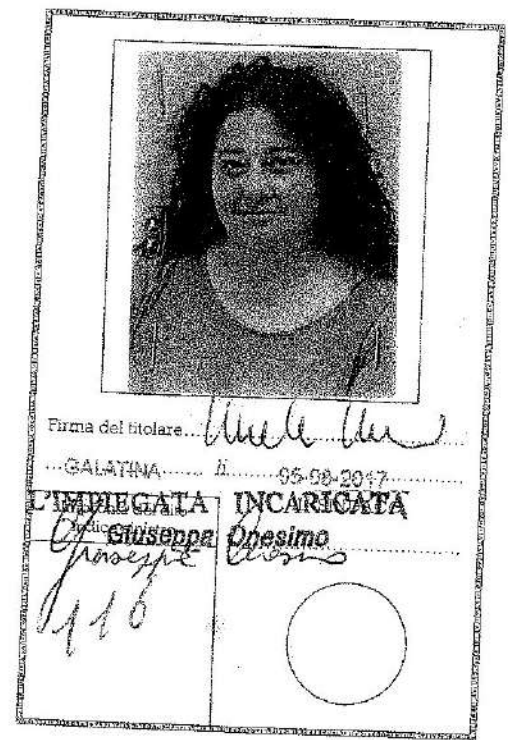 Firma del titolare
GALATINA li 05-08-2017
L'IMPIEGATA INCARICATA
Giuseppa Onesimo
Giuseppa Onesimo
116